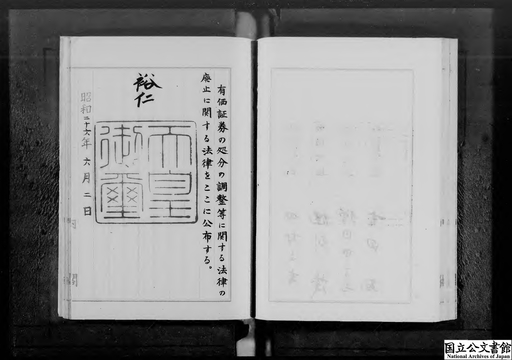 有価証券の処分の調整等に関する法律の
廃止に関する法律をここに公布する。
裕仁
天皇
御璽
昭和二十六年六月二日
国立公文書館
National Archives of Japan